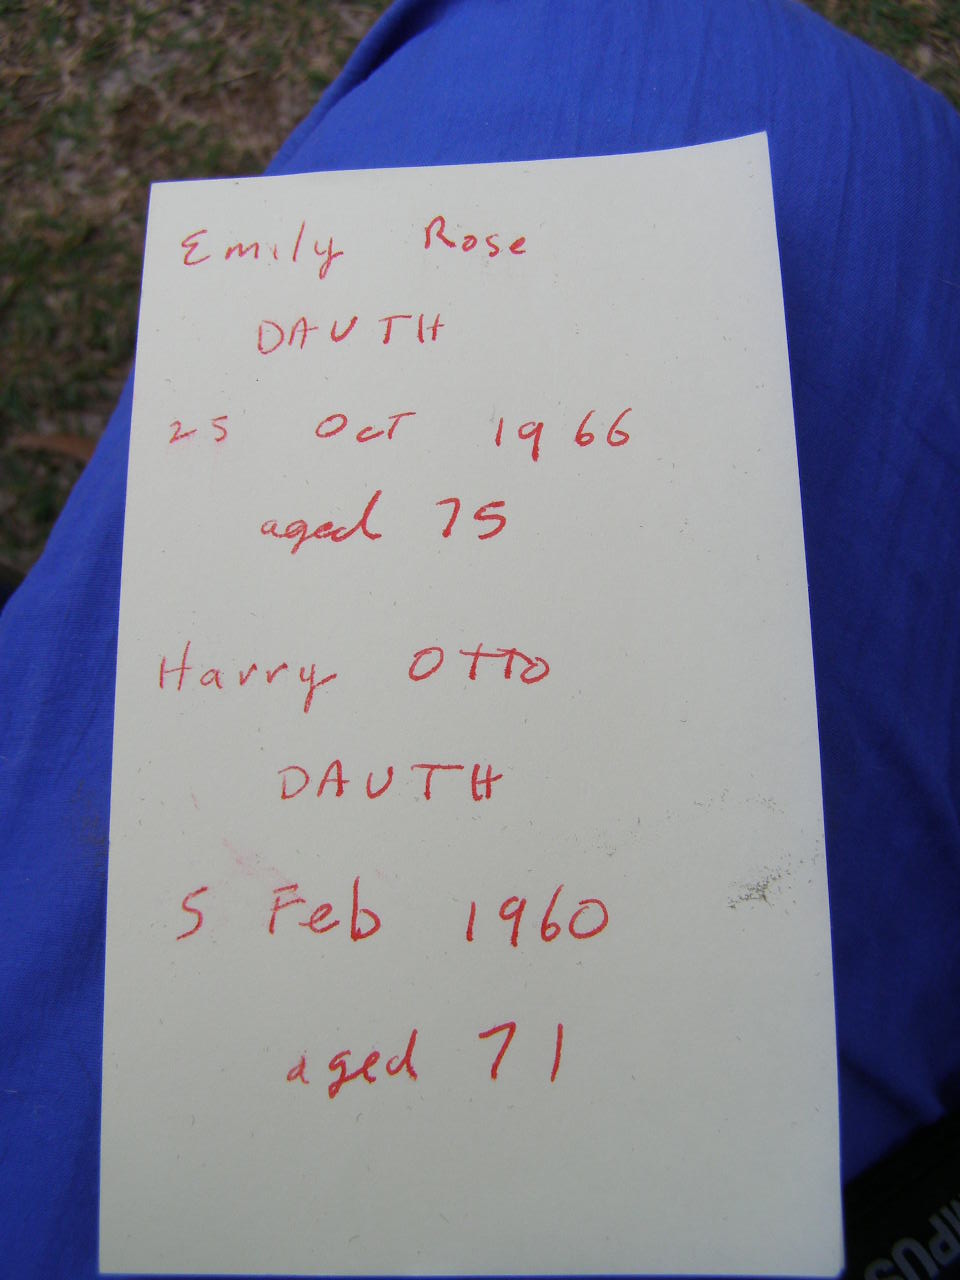 Emily Rose
DAUTH
25 Oct 1966
aged 75
Harry Otto
DAUTH
5 Feb 1960
aged 71